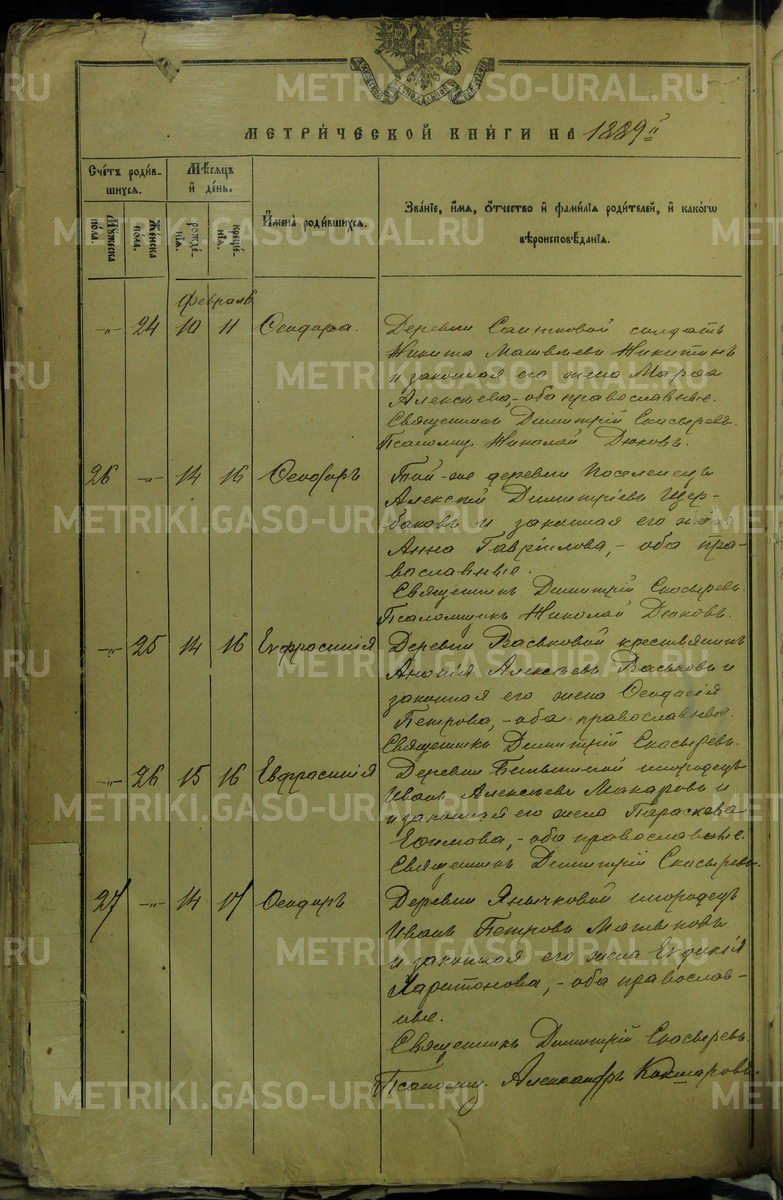 МЕТРИ́ЧЕСКОЙ КНИ́ГИ НА 1889 г
Сче́тъ роди́в-
шихся.
Мꙋ́жеска по́ла.
Же́нска по́ла.
Мѣ́сяцъ
и҆ де́нь.
рожде́-
нїѧ.
креще́-
нїѧ.
И҆мена̀ роди́вшихся.
Зва́нїе, и҆́мѧ, ѻ҆́тчество и҆ фами́лїѧ роди́телей, и҆ како́гѡ
вѣроисповѣ́данїѧ.
Февраль
-„- 24 10 11 Ѳеодора. Деревни солдатъ
Никита Матвѣевъ Никитинъ
и законная его жена Марѳа
Алексѣева,- оба православные.
Священникъ Димитрій Скосыревъ.
Псаломщ. Николай
26 -„- 14 16 Ѳеодоръ Той-же деревни поселенецъ
Алексѣй Димитріевъ Щер-
баковъ и законная его
Анна Гаврилова,- оба пра-
вославные.
Священникъ Димитрій Скосыревъ.
Псаломщикъ Николай
-„- 25 14 16 Евфросинія Деревни Васьковой крестьянинъ
Ананія Алексѣевъ Васьковъ и
законная его жена Ѳеодосія
Петрова,- оба православные.
Священникъ Димитрій Скосыревъ.
-„- 26 15 16 Евфросинія Деревни инородецъ
Иванъ Алексѣевъ Макаровъ и
и законная его жена Параскева
Ефимова,- оба православные.
Священникъ Димитрій Скосыревъ.
27 -„- 14 17 Ѳеодоръ Деревни Янычковой инородецъ
Иванъ Петровъ
и законная его жена Евдокія
Харитонова,- оба православ-
ные.
Священникъ Димитрій Скосыревъ.
Псаломщ. Александръ
METRIKI.GASO-URAL.RU